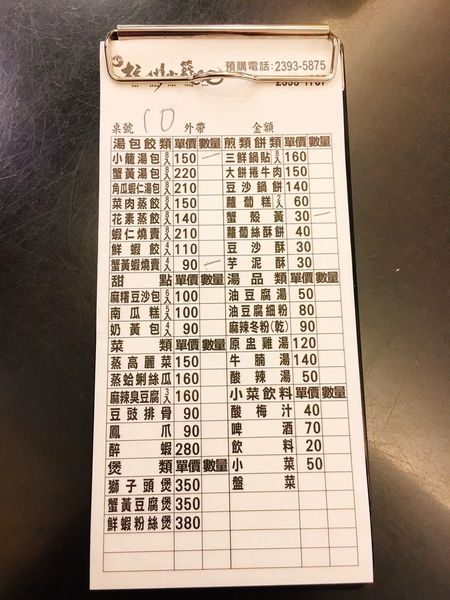 杭州小籠湯包
預購電話:2393-5875
桌號 10 外帶 金額
湯包餃類 單價 數量 煎類餅類 單價 數量
小籠湯包 150 一 三鮮鍋貼 160
蟹黃湯包 220 大餅捲牛肉 150
角瓜蝦仁湯包 210 豆沙鍋餅 140
菜肉蒸餃 150 蘿蔔糕 60
花素蒸餃 140 蟹殼黃 30 一
蝦仁燒賣 210 蘿蔔絲酥餅 40
鮮蝦餃 110 豆沙酥 30
蟹黃蝦燒賣 90 一 芋泥酥 30
甜點 單價 數量 湯品類 單價 數量
麻糬豆沙包 100 油豆腐湯 50
南瓜糕 100 油豆腐細粉 80
奶黃包 90 麻辣冬粉(乾) 90
菜類 單價 數量 原盅雞湯 120
蒸高麗菜 150 牛腩湯 140
蒸蛤蜊絲瓜 160 酸辣湯 50
麻辣臭豆腐 160 小菜飲料 單價 數量
豆豉排骨 90 酸梅汁 40
鳳爪 90 啤酒 70
醉蝦 280 飲料 20
煲類 單價 數量 小菜 50
獅子頭煲 350 盤菜
蟹黃豆腐煲 350
鮮蝦粉絲煲 380